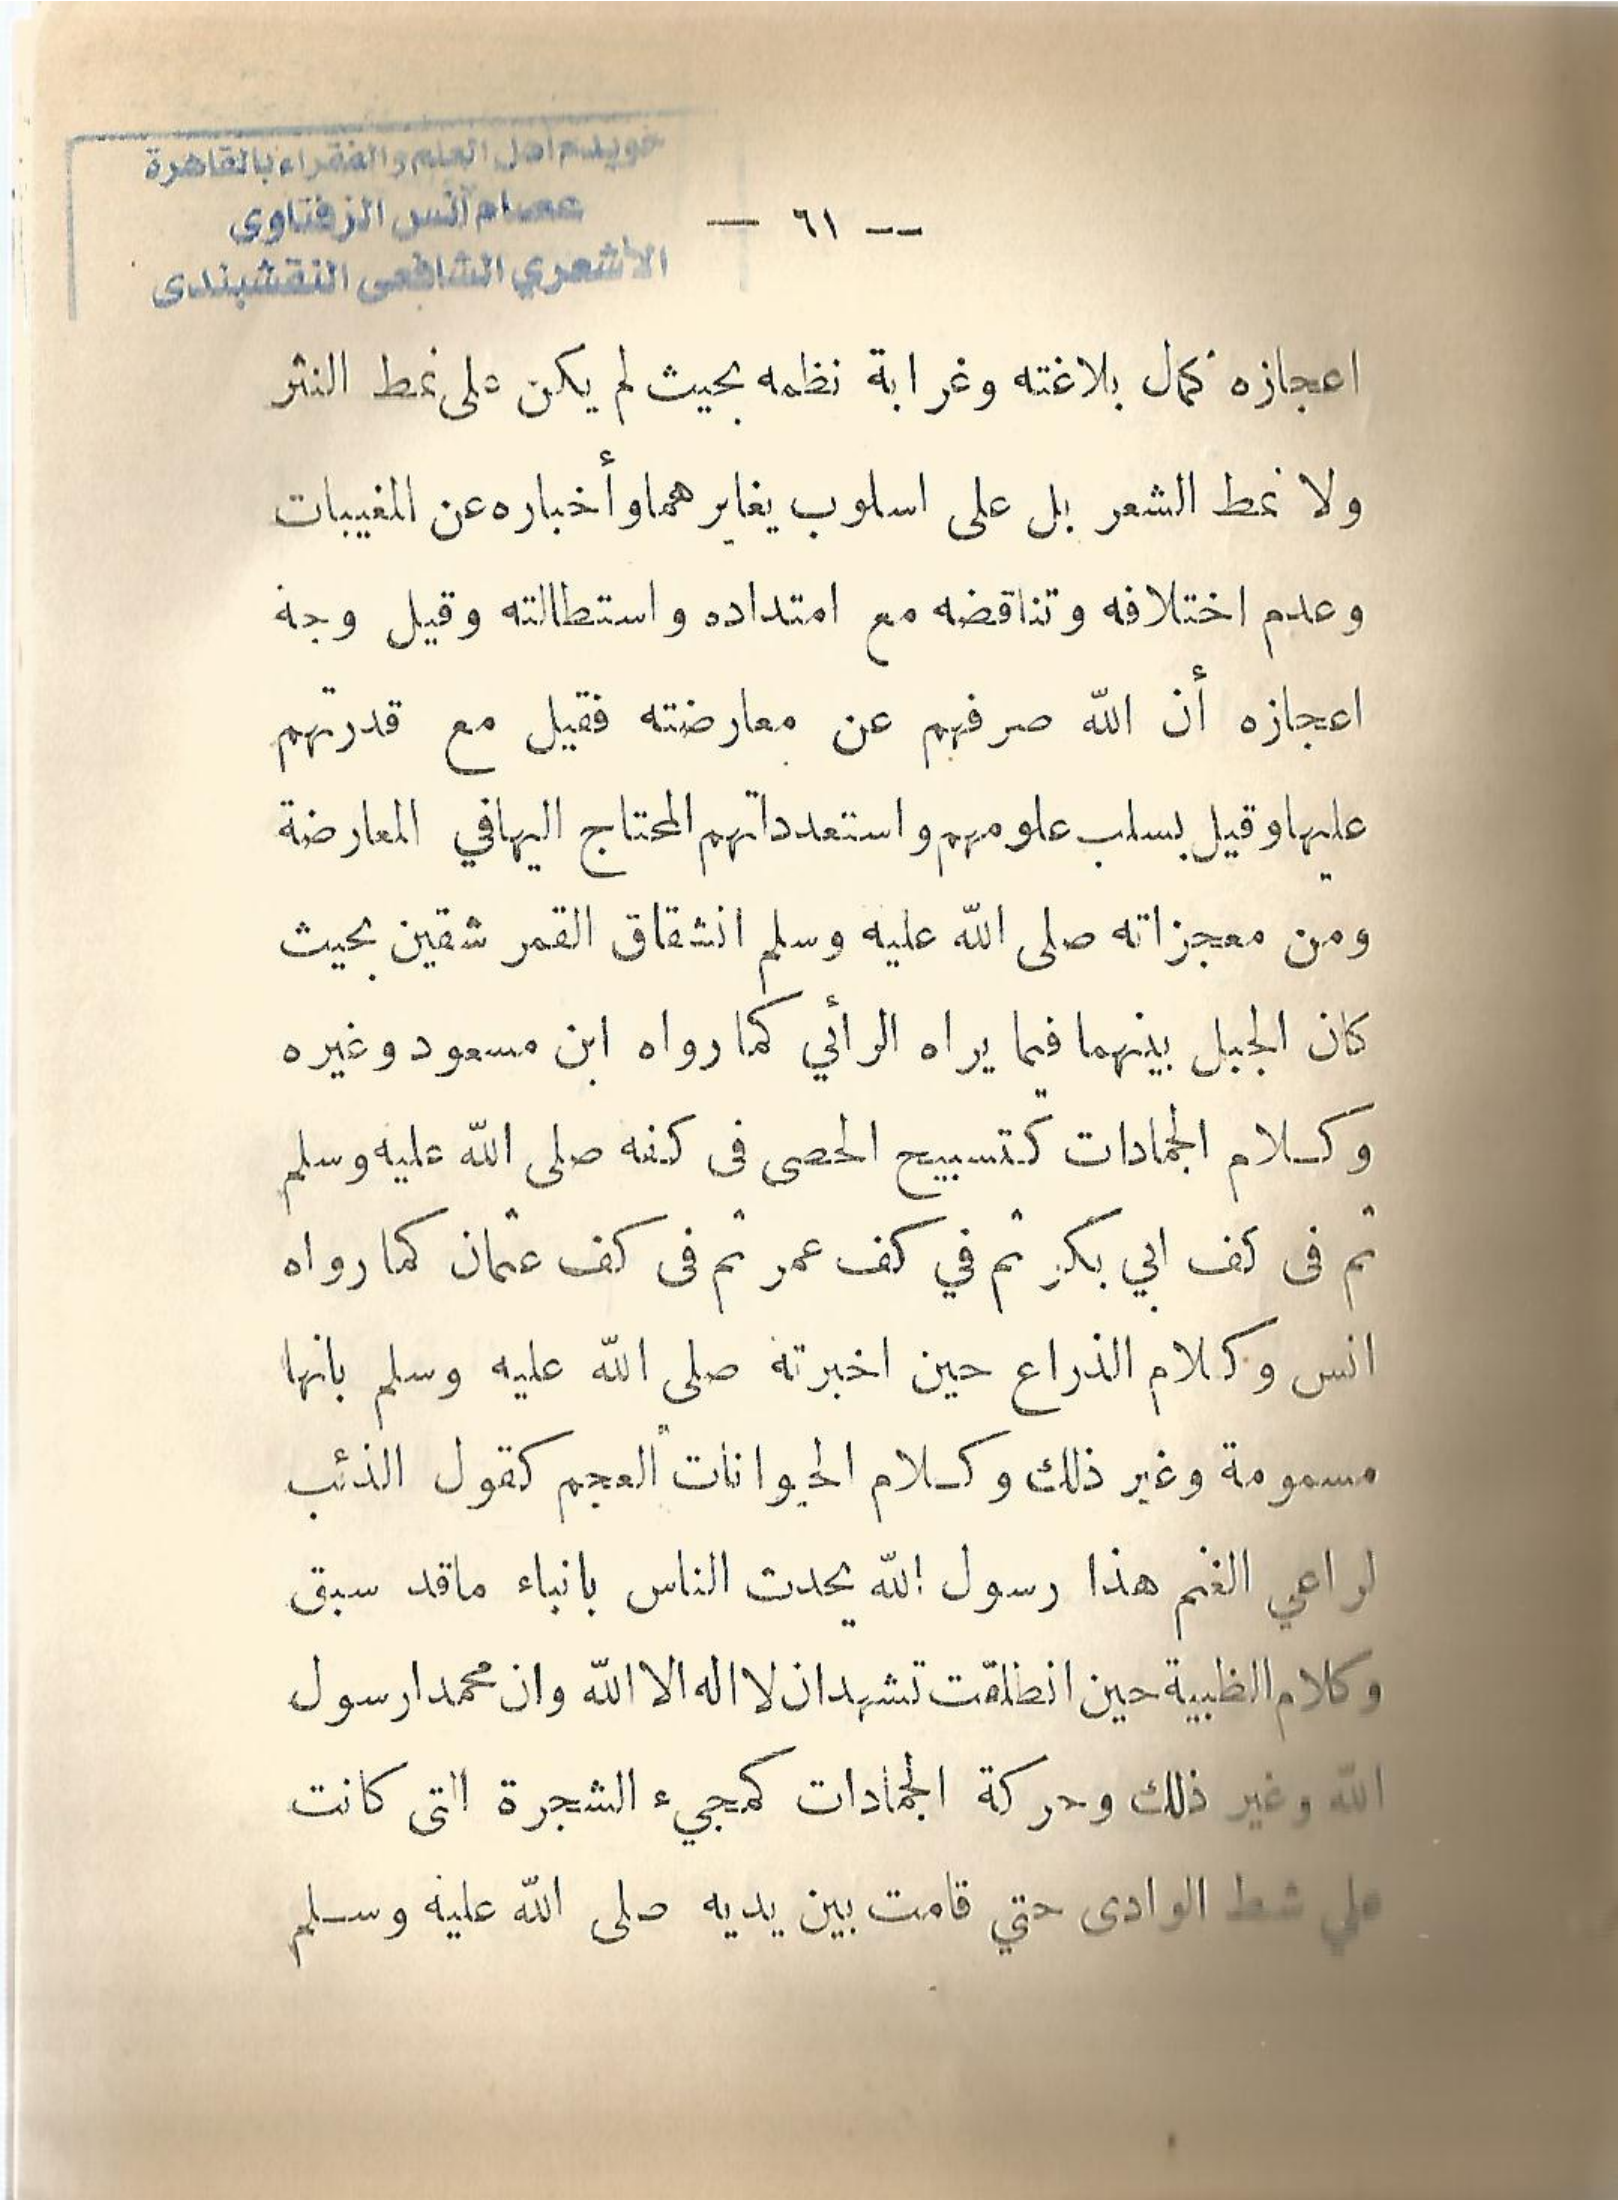 خويدم اهل العلم والفقراء بالقاهرة
عصام أنس الزفتاوى
الأشعري الشافعى النقشبندى
— ٦١ —
اعجازه كمال بلاغته وغرابة نظمه بحيث لم يكن على نمط النثر
ولا نمط الشعر بل على اسلوب يغاير هماو أخباره عن المغيبات
وعدم اختلافه وتناقضه مع امتداده واستطالته وقيل وجه
اعجازه أن الله صرفهم عن معارضته فقيل مع قدرتهم
عليها وقيل بسلب علومهم واستعدداتهم المحتاج اليها في المعارضة
ومن معجزاته صلى الله عليه وسلم انشقاق القمر شقين بحيث
كان الجبل بينهما فيما يراه الرأي كما رواه ابن مسعود وغيره
وكلام الجمادات كتسبيح الحصى فى كفه صلى الله عليه وسلم
ثم فى كف ابي بكر ثم في كف عمر ثم فى كف عثمان كما رواه
انس وكلام الذراع حين اخبرته صلى الله عليه وسلم بانها
مسمومة وغير ذلك وكلام الحيوانات العجم كقول الذئب
لراعي الغنم هذا رسول الله يحدث الناس بانباء ماقد سبق
وكلام الظبية حين انطلقت تشهد ان لا اله الا الله وان محمدا رسول
الله وغير ذلك وحركة الجمادات كمجيء الشجرة التى كانت
علي شط الوادى حتي قامت بين يديه صلى الله عليه وسلم